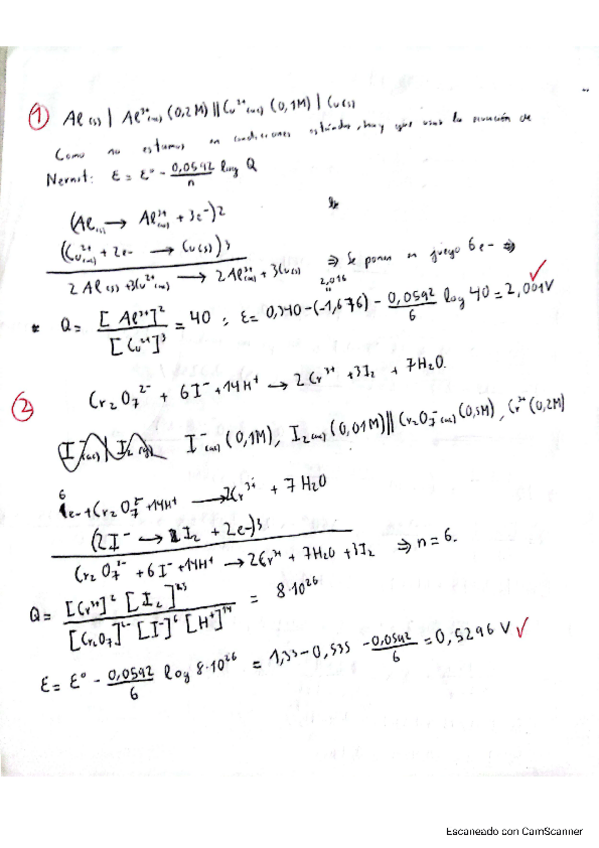 ① Al(s) | Al³⁺(aq) (0,2M) || Cu²⁺(aq) (0,1M) | Cu(s)
Como no estamos en condiciones estándar, hay que usar la ecuación de
Nernst: ε = ε° - 0,0592/n log Q
(Al(s) → Al³⁺(aq) + 3e-)2
(Cu²⁺(aq) + 2e- → Cu(s))3
2Al(s) + 3Cu²⁺(aq) → 2Al³⁺(aq) + 3Cu(s) ⇒ Se ponen en juego 6e- ⇒
2,016
* Q = [Al³⁺]²/[Cu²⁺]³ = 40 ; ε = 0,340-(-1,676) - 0,0592/6 log 40 = 2,001V ✓
② Cr₂O₇²⁻ + 6I⁻ + 14H⁺ → 2Cr³⁺ + 3I₂ + 7H₂O.
I⁻(aq) (0,1M), I₂(aq) (0,01M) || Cr₂O₇⁻(aq) (0,5M), Cr³⁺(0,2M)
6e- + Cr₂O₇²⁻ + 14H⁺ → 2Cr³⁺ + 7H₂O
(2I⁻ → I₂ + 2e-)3
Cr₂O₇²⁻ + 6I⁻ + 14H⁺ → 2Cr³⁺ + 7H₂O + 3I₂ ⇒ n = 6.
Q = [Cr³⁺]² [I₂]³/[Cr₂O₇]²⁻ [I⁻]⁶ [H⁺]¹⁴ = 8·10²⁶
ε = ε° - 0,0592/6 log 8·10²⁶ = 1,33-0,535 - 0,0592/6 = 0,5296 V ✓
Escaneado con CamScanner